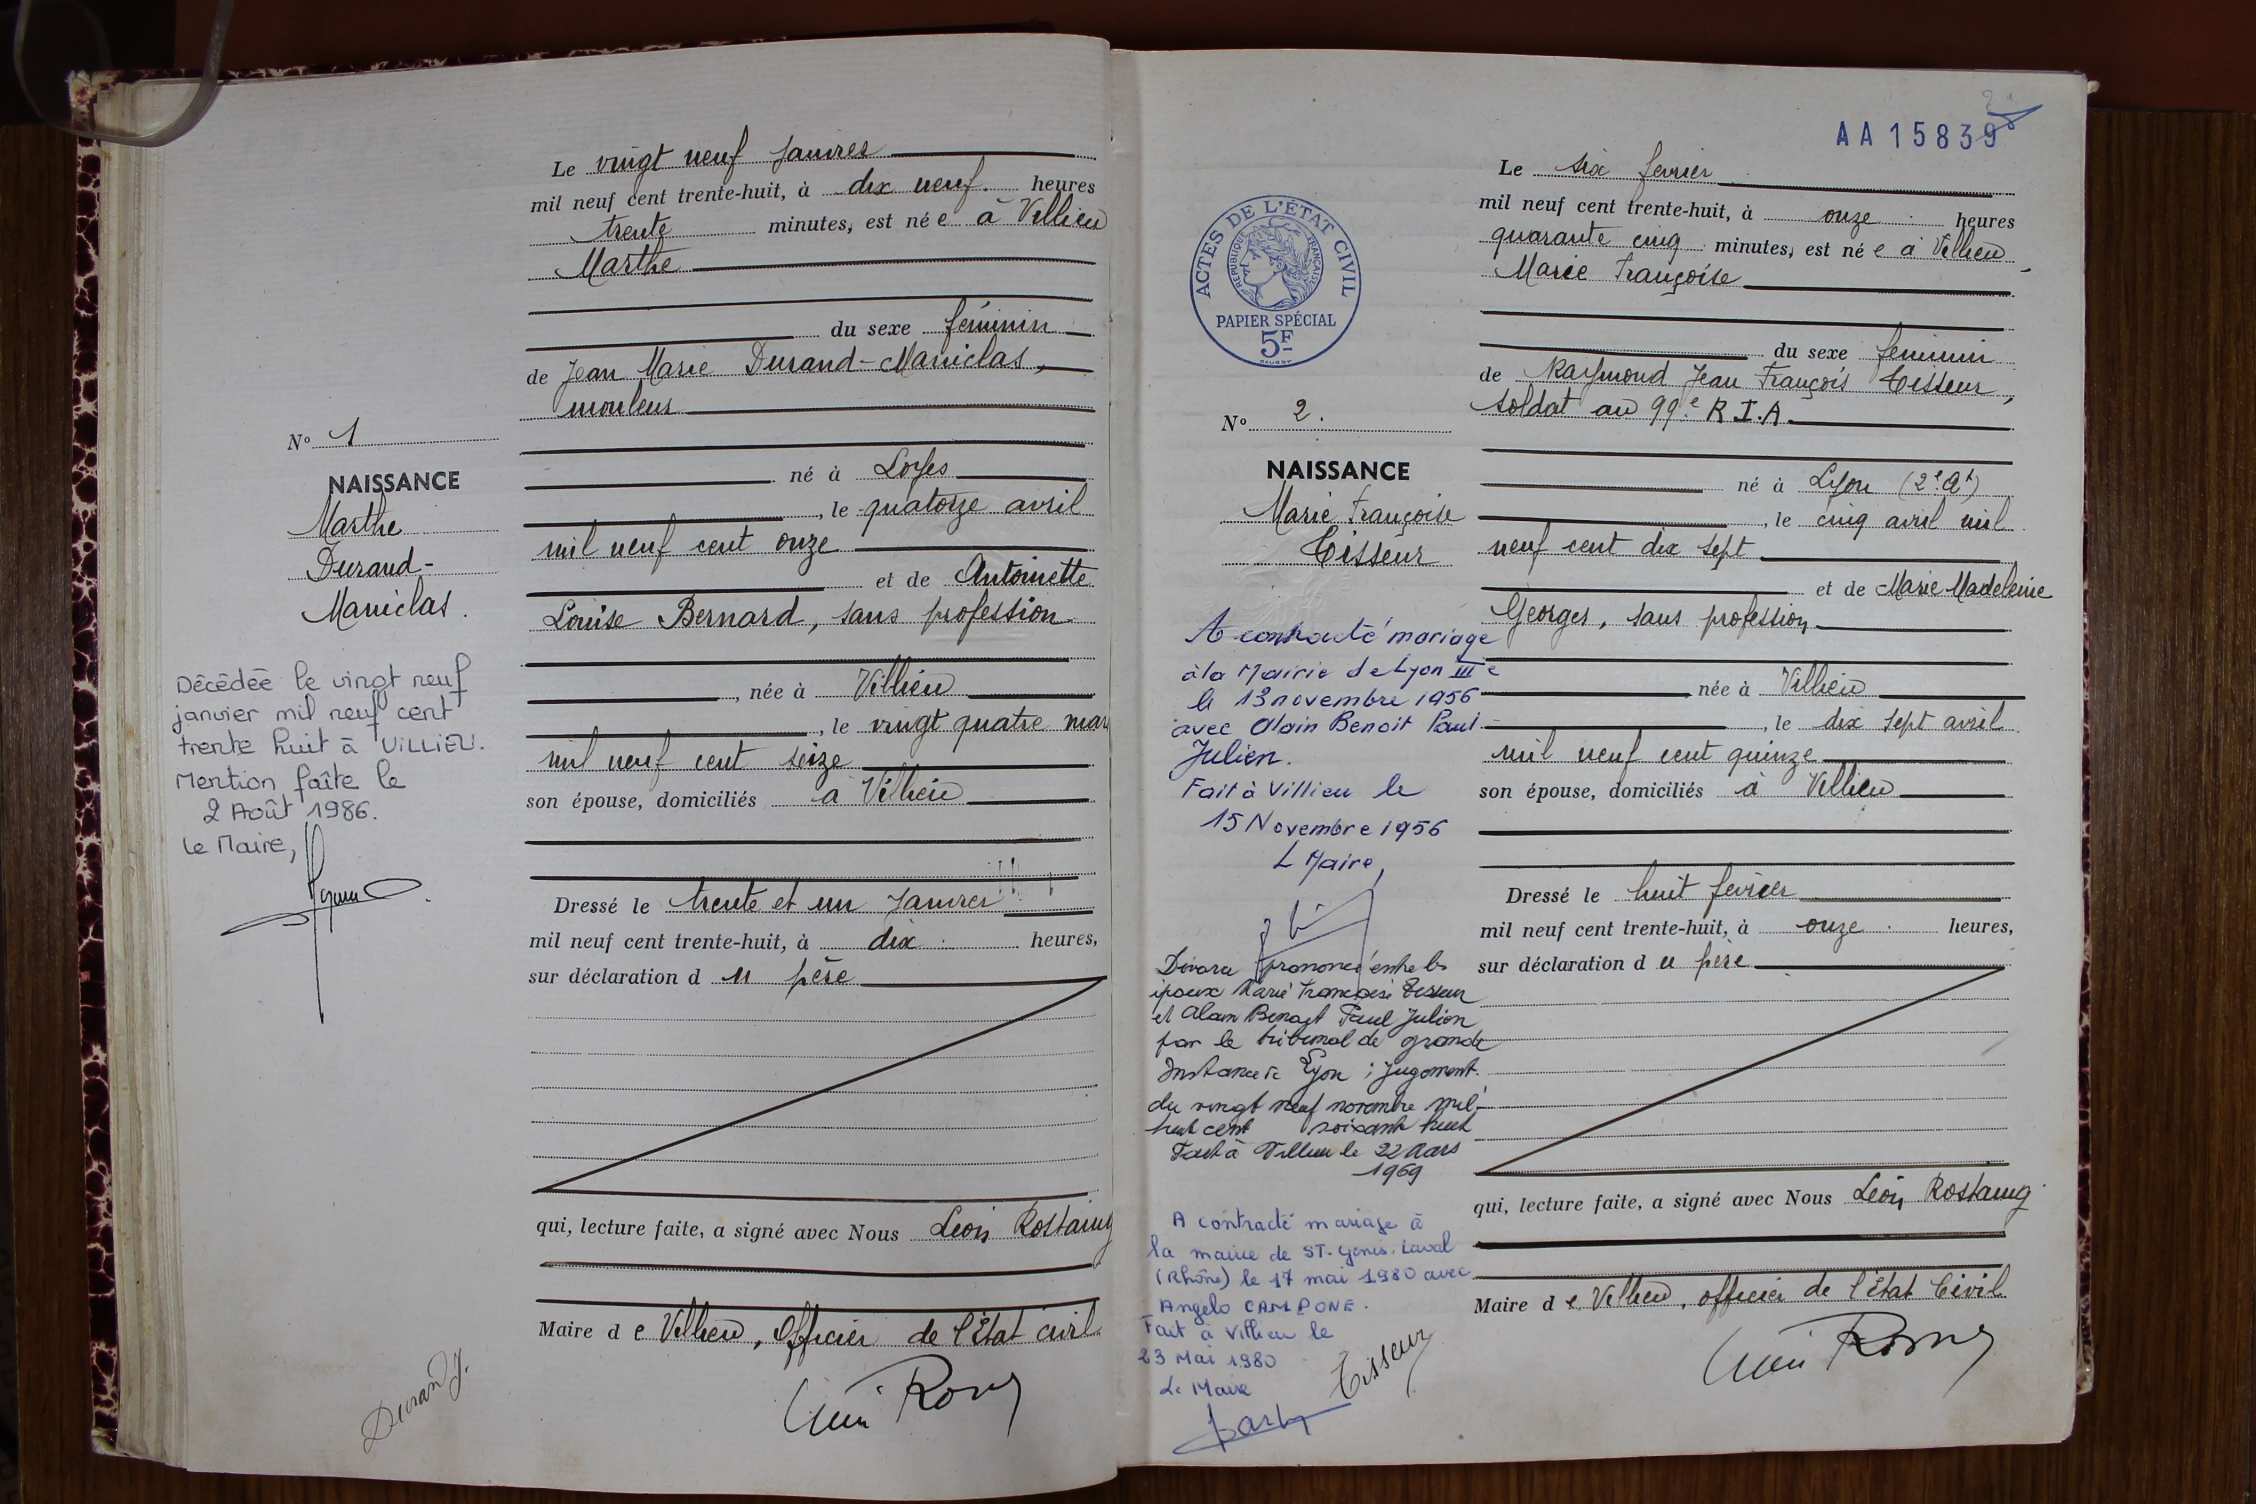 Le vingt neuf Janvier
mil neuf cent trente-huit, à dix neuf heures
trente minutes, est né e à Villieu
Marthe
du sexe féminin
de Jean Marie Durand-Maniclas,
mouleur
né à Loyes
, le quatorze avril
mil neuf cent onze
et de Antoinette
Louise Bernard, sans profession
, née à Villieu
, le vingt quatre mars
mil neuf cent seize
son épouse, domiciliés à Villieu
Dressé le trente et un Janvier
mil neuf cent trente-huit, à dix heures,
sur déclaration d u père
qui, lecture faite, a signé avec Nous Léon Rostaing
Maire d e Villieu, Officier de l'État civil
Nº 1
NAISSANCE
Marthe
Durand-
Maniclas.
Décédée le vingt neuf
janvier mil neuf cent
trente huit à VILLIEU.
Mention faîte le
2 Août 1986.
Le Maire,
Durand J.
AA 15839
ACTES DE L'ÉTAT CIVIL
RÉPUBLIQUE FRANÇAISE
PAPIER SPÉCIAL
5F
Le six février
mil neuf cent trente-huit, à onze heures
quarante cinq minutes, est né e à Villieu
Marie Françoise
du sexe feminin
de Raymond Jean François Tisseur,
soldat au 99.e R.I.A
né à Lyon (2e At)
, le cinq avril mil
neuf cent dix sept
et de Marie Madeleine
Georges, sans profession
née à Villieu
, le dix sept avril
mil neuf cent quinze
son épouse, domiciliés à Villieu
Dressé le huit février
mil neuf cent trente-huit, à onze heures,
sur déclaration d u père
qui, lecture faite, a signé avec Nous Léon Rostaing
Maire d e Villieu, officier de l'État Civil
Nº 2.
NAISSANCE
Marie Françoise
Tisseur
A contracté mariage
à la Mairie de Lyon IIIe
le 13 novembre 1956
avec Alain Benoit Paul
Julien.
Fait à Villieu le
15 Novembre 1956
L Maire,
Divorce prononcé entre les
époux Marie Françoise Tisseur
et Alain Benoit Paul Julien
par le tribunal de grande
Instance de Lyon ; Jugement
du vingt neuf novembre mil
huit cent soixante huit
Fait à Villieu le 22 Mars
1969
A contracté mariage à
la mairie de ST. Genis. Laval
(Rhône) le 17 mai 1980 avec
Angelo CAMPONE.
Fait à Villieu le
23 Mai 1980
Le Maire
Tisseur